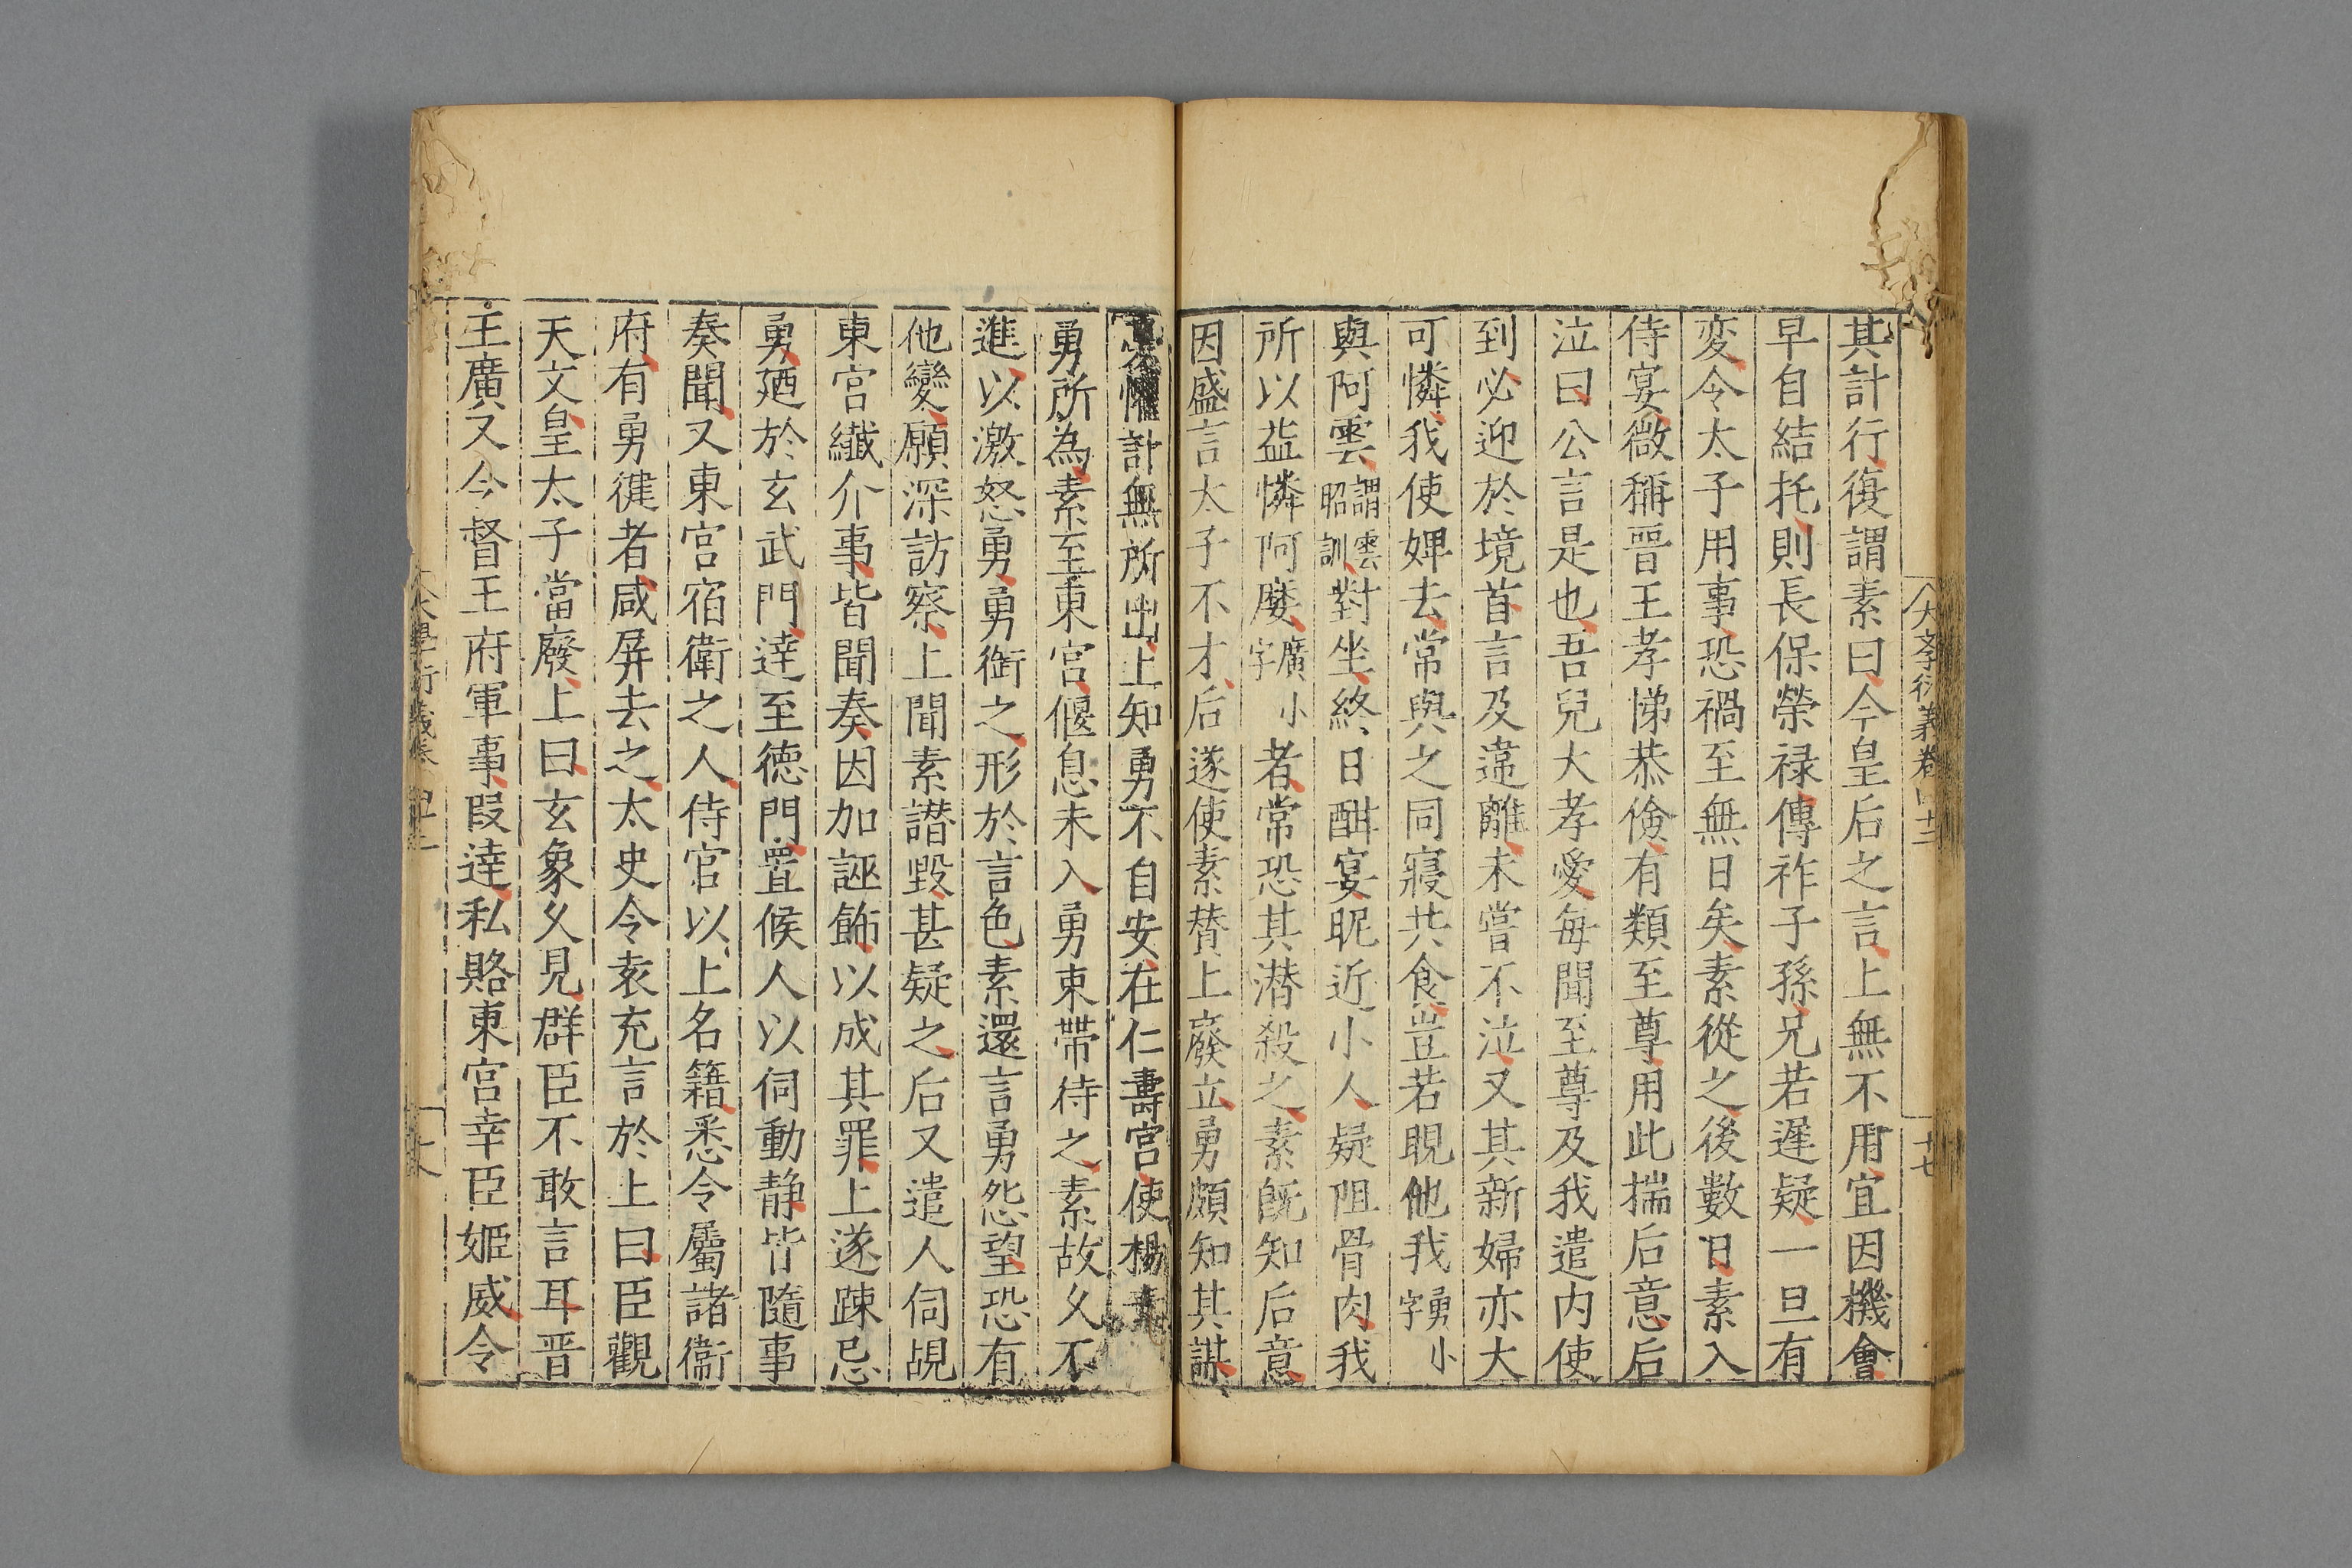 大斈衍義卷四十二
十七
其計行復謂素曰今皇后之言上無不用宜因機會
早自結托則長保榮禄傳祚子孫兄若遲疑一旦有
変令太子用事恐禍至無日矣素從之後數日素入
侍宴微稱晋王孝悌恭儉有類至尊用此揣后意后
泣曰公言是也吾兒大孝愛每聞至尊及我遣内使
到必迎於境首言及違離未嘗不泣又其新婦亦大
可憐我使婢去常與之同寝共食豈若睍他我勇小字
與阿雲謂雲昭訓對坐終日酣宴昵近小人疑阻骨肉我
所以益憐阿㜷廣小字者常恐其潜殺之素既知后意
因盛言太子不才后遂使素賛上廢立勇頗知其謀
憂懼計無所出上知勇不自安在仁壽宮使楊素
勇所為素至東宮偃息未入勇束帶待之素故久不
進以激怒勇勇銜之形於言色素還言勇怨望恐有
他變願深訪察上聞素譛毀甚疑之后又遣人伺覘
東宮纎介事皆聞奏因加誣飾以成其罪上遂踈忌
勇廼於玄武門逹至德門置候人以伺動静皆隨事
奏聞又東宮宿衛之人侍官以上名籍悉令屬諸衛
府有勇健者咸屏去之太史令袁充言於上曰臣觀
天文皇太子當廢上曰玄象久見群臣不敢言耳晋
王廣又令督王府軍事叚逹私賂東宮幸臣姬威令
大學衍義卷
十八